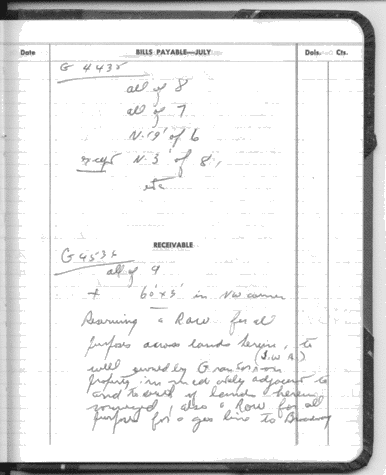 Date BILLS PAYABLE—JULY Dols. Cts.
G 4435
all of 8
all of 7
N. 19' of 6
except N. 3' of 8,
etc
RECEIVABLE
G 4535
all of 9
+ 60' x 5' in NW corner
Reserving a Row for all
purposes across lands herein, to
(S.W.A.)
well owned by Grantor on
property immediately adjacent to
and to south of lands herein
conveyed, also a Row for all
purposes for a gas line to Broadway